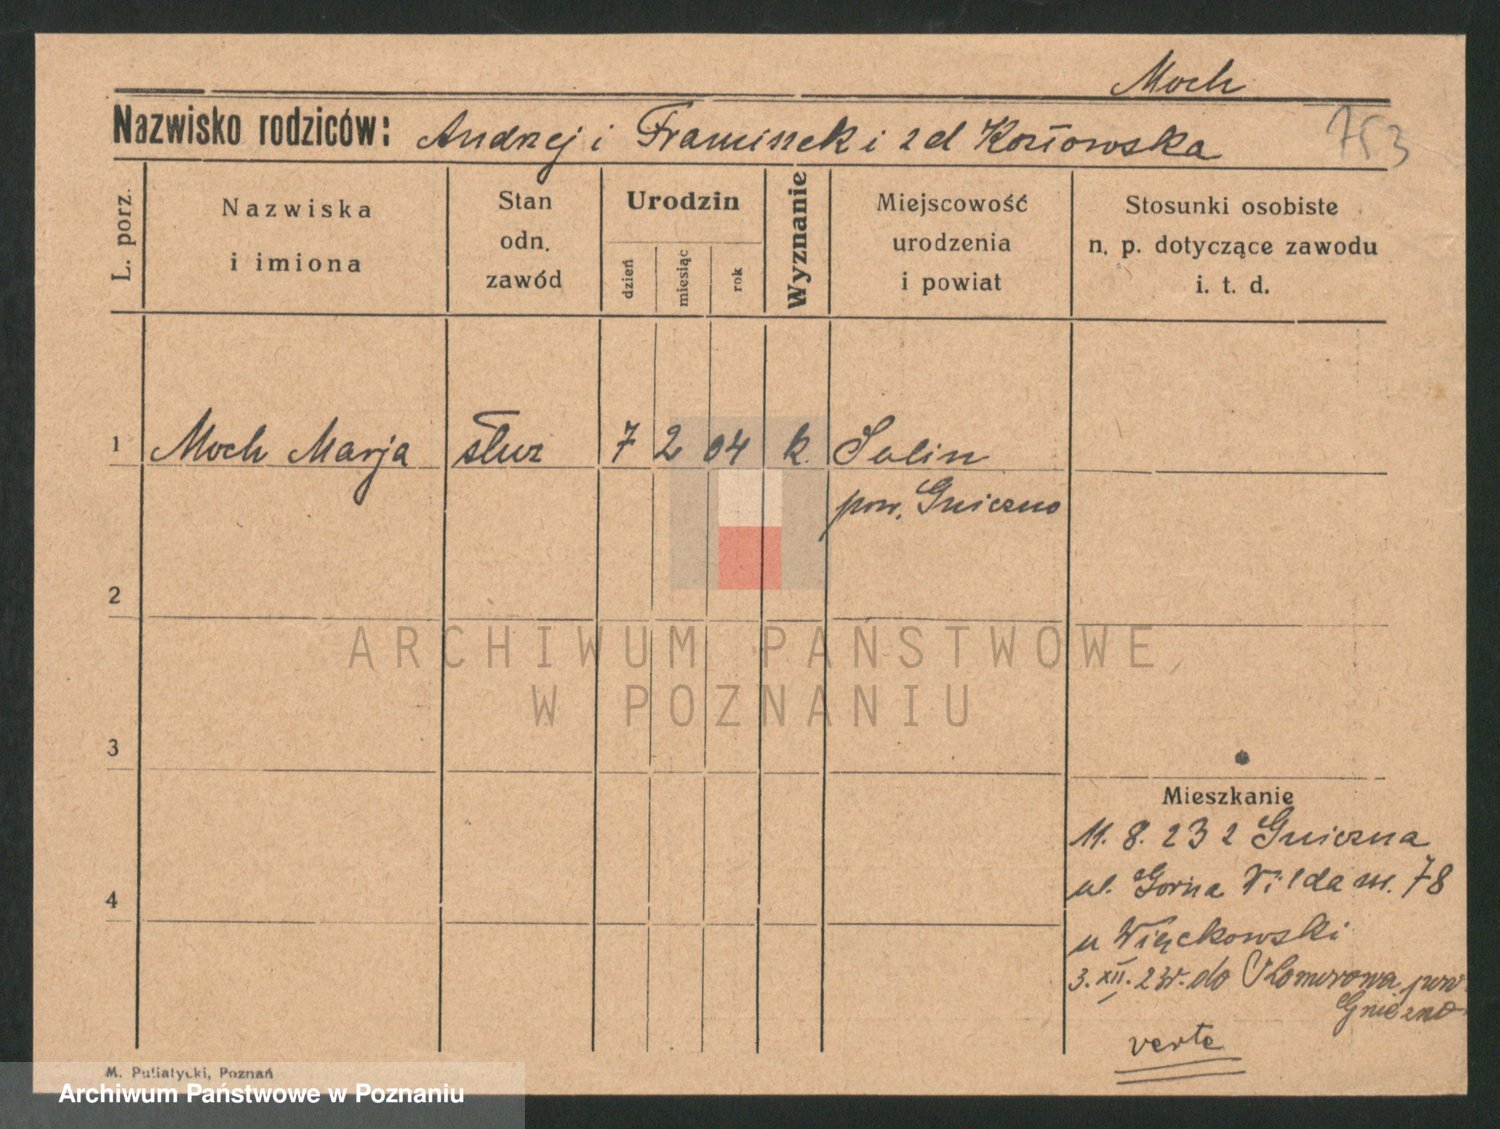 Moch
Nazwisko rodziców: Andrzej i Franciszek i z d Kozłowska
753
L. porz.
Nazwiska
i imiona
Stan
odn.
zawód
Urodzin
dzień
miesiąc
rok
Wyznanie
Miejscowość
urodzenia
i powiat
Stosunki osobiste
n. p. dotyczące zawodu
i. t. d.
1 Moch Marja służ 7 2 04 k. Jalin
pow. Gniezno
2
ARCHIWUM PAŃSTWOWE
W POZNANIU
3
Mieszkanie
11. 8. 23 z Gniezna
4
ul. Gorna Wilda m. 78
u Więckowski
3. XII. 23r. do Komorowa pow
Gniezno
verte
M. Putiatycki, Poznań
Archiwum Państwowe w Poznaniu